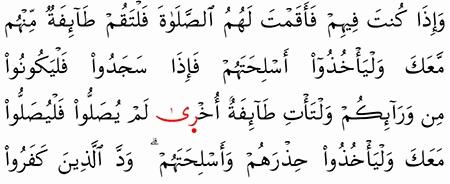 وَإِذَا كُنتَ فِيهِمْ فَأَقَمْتَ لَهُمُ ٱلصَّلَوٰةَ فَلْتَقُمْ طَآئِفَةٌ مِّنْهُم
مَّعَكَ وَلْيَأْخُذُوٓا۟ أَسْلِحَتَهُمْ فَإِذَا سَجَدُوا۟ فَلْيَكُونُوا۟
مِن وَرَآئِكُمْ وَلْتَأْتِ طَآئِفَةٌ أُخْرَىٰ لَمْ يُصَلُّوا۟ فَلْيُصَلُّوا۟
مَعَكَ وَلْيَأْخُذُوا۟ حِذْرَهُمْ وَأَسْلِحَتَهُمْ ۗ وَدَّ ٱلَّذِينَ كَفَرُوا۟